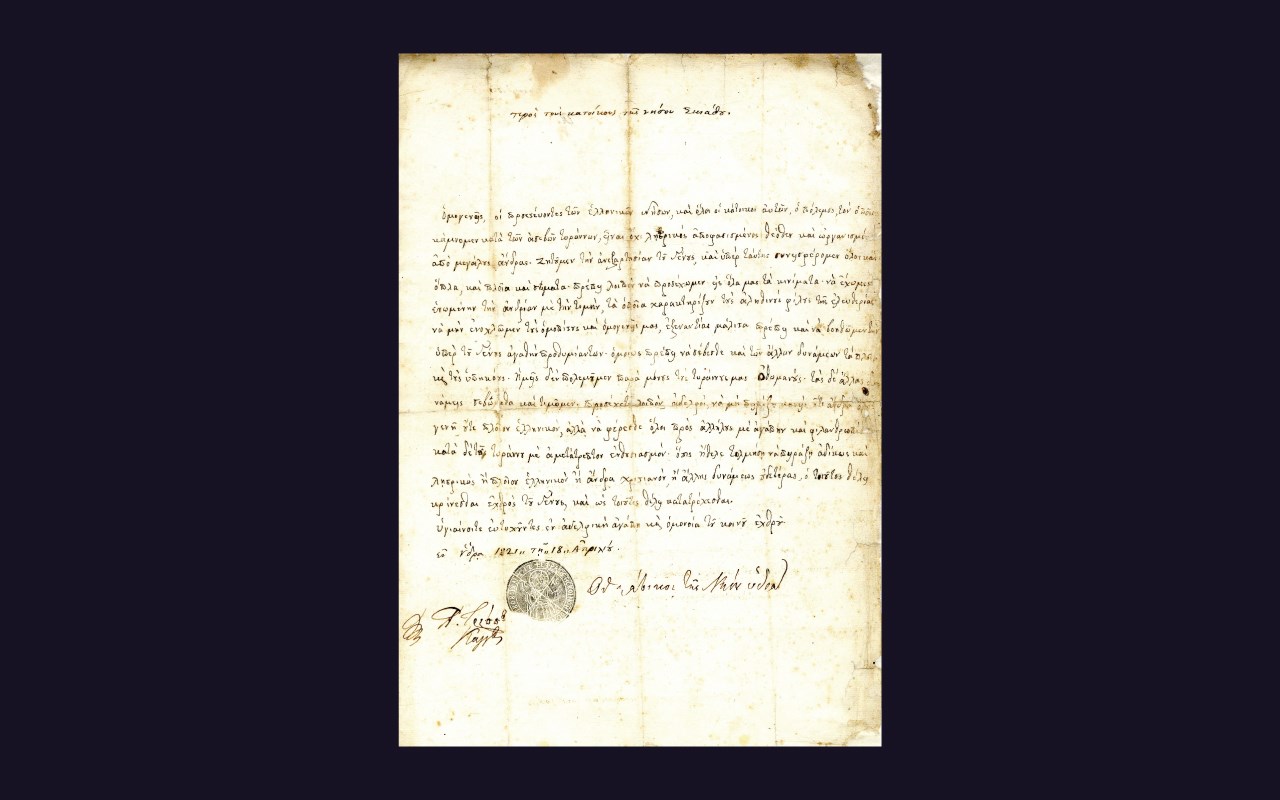 προς τους κατοίκους της νήσου Σκιάθου.
Ὁμογενεῖς, οἱ προεστεύοντες τῶν ἑλληνικῶν νήσων, καὶ ὅλοι οἱ κάτοικοι αὐτῶν, ὁ πόλεμος, τὸν ὁποῖον
κάμνομεν κατὰ τῶν ἀσεβῶν τυράννων, εἶναι ὄχι ληστρικὸς ἀποφασισμένος θεόθεν καὶ ὠργανισμένος
ἀπὸ μεγάλους ἄνδρας. Ζητοῦμεν τὴν ἀνεξαρτησίαν τοῦ Γένους, καὶ ὑπὲρ ταύτης συνεισφέρομεν ὅλοι καὶ
ὅπλα, καὶ πλοῖα καὶ σώματα. πρέπει λοιπὸν νὰ προσέχωμεν εἰς ὅλα μας τὰ κινήματα. νὰ ἔχωμεν
ἑνωμένην τὴν ἀνδρίαν μὲ τὴν τιμὴν, τὰ ὁποῖα χαρακτηρίζουν τοὺς ἀληθινοὺς φίλους τῆς ἐλευθερίας
νὰ μὴν ἐνοχλῶμεν τοὺς ὁμοπίστους καὶ ὁμογενεῖς μας, ἐξεναντίας μάλιστα πρέπει καὶ νὰ βοηθῶμεν τὴν
ὑπὲρ τοῦ Γένους ἀγαθὴν προθυμίαν των. ὁμοίως πρέπει νὰ σέβεσθε καὶ τῶν ἄλλων δυνάμεων τὰ πλοῖα
καὶ τοὺς ὑπηκόους. Ἡμεῖς δὲν πολεμοῦμεν παρὰ μόνους τοὺς τυράννους μας Ὀθωμανούς. τὰς δὲ ἄλλας
νάμεις σεβόμεθα καὶ τιμῶμεν. προσέχετε λοιπὸν ἀδελφοί, νὰ μὴ
γενῆ οὔτε πλοῖον ἑλληνικὸν, ἀλλὰ νὰ φέρεσθε ὅλοι πρὸς ἀλλήλους μὲ ἀγάπην καὶ φιλανθρωπίαν
κατὰ δὲ τοῦ τυράννου μὲ ἀμετάτρεπτον ἐνθουσιασμόν. ὅστις ἤθελε τολμήση νὰ πειράξη ἀδίκως καὶ
ληστρικῶς ἢ πλοῖον ἑλληνικὸν ἢ ἄνδρα χριστιανὸν, ἢ ἄλλης δυνάμεως οὐδετέρας, ὁ τοιοῦτος θέλει
κρίνεσθαι ἐχθρὸς τοῦ Γένους, καὶ ὡς τοιοῦτος θέλει κατατρέχεσθαι.
Ὑγιαίνοιτε εὐτυχοῦντες ἐν ἀδελφικῇ ἀγάπῃ καὶ ὁμονοίᾳ τοῦ κοινοῦ ἐχθροῦ.
ἐν ὕδρᾳ 1821 τῇ 18 Ἀπριλίου.
Οἱ κάτοικοι τῆς Νήσου ὕδρας